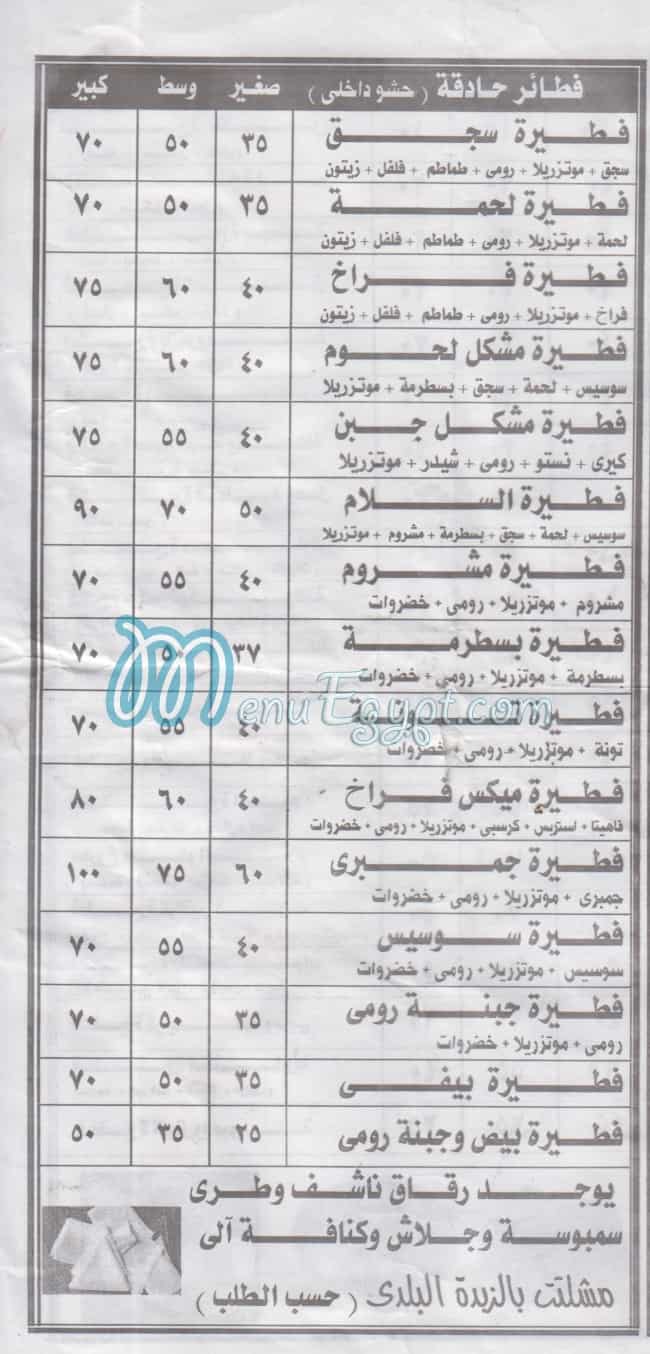 فطائر حادقة (حشو داخلى) صغير وسط كبير
فطيرة سجق ٣٥ ٥٠ ٧٠
سجق + موتزريلا + رومى + طماطم + فلفل + زيتون
فطيرة لحمة ٣٥ ٥٠ ٧٠
لحمة + موتزريلا + رومى + طماطم + فلفل + زيتون
فطيرة فراخ ٤٠ ٦٠ ٧٥
فراخ + موتزريلا + رومى + طماطم + فلفل + زيتون
فطيرة مشكل لحوم ٤٠ ٦٠ ٧٥
سوسيس + لحمة + سجق + بسطرمة + موتزريلا
فطيرة مشكل جبن ٤٠ ٥٥ ٧٥
كيرى + نستو + رومى + شيدر + موتزريلا
فطيرة السلام ٥٠ ٧٠ ٩٠
سوسيس + لحمة + سجق + بسطرمة + مشروم + موتزريلا
فطيرة مشروم ٤٠ ٥٥ ٧٠
مشروم + موتزريلا + رومى + خضروات
فطيرة بسطرمة ٣٧ ٥٠ ٧٠
بسطرمة + موتزريلا + رومى + خضروات
MenuEgypt.com
فطيرة تونة ٤٠ ٥٥ ٧٠
تونة + موتزريلا + رومى + خضروات
فطيرة ميكس فراخ ٤٠ ٦٠ ٨٠
فاهيتا + استربس + كرسبى + موتزريلا + رومى + خضروات
فطيرة جمبرى ٦٠ ٧٥ ١٠٠
جمبرى + موتزريلا + رومى + خضروات
فطيرة سوسيس ٤٠ ٥٥ ٧٠
سوسيس + موتزريلا + رومى + خضروات
فطيرة جبنة رومى ٣٥ ٥٠ ٧٠
رومى + موتزريلا + خضروات
فطيرة بيفى ٣٥ ٥٠ ٧٠
فطيرة بيض وجبنة رومى ٢٥ ٣٥ ٥٠
يوجد رقاق ناشف وطرى
سمبوسة وجلاش وكنافة آلى
مشلتت بالزبدة البلدى (حسب الطلب)